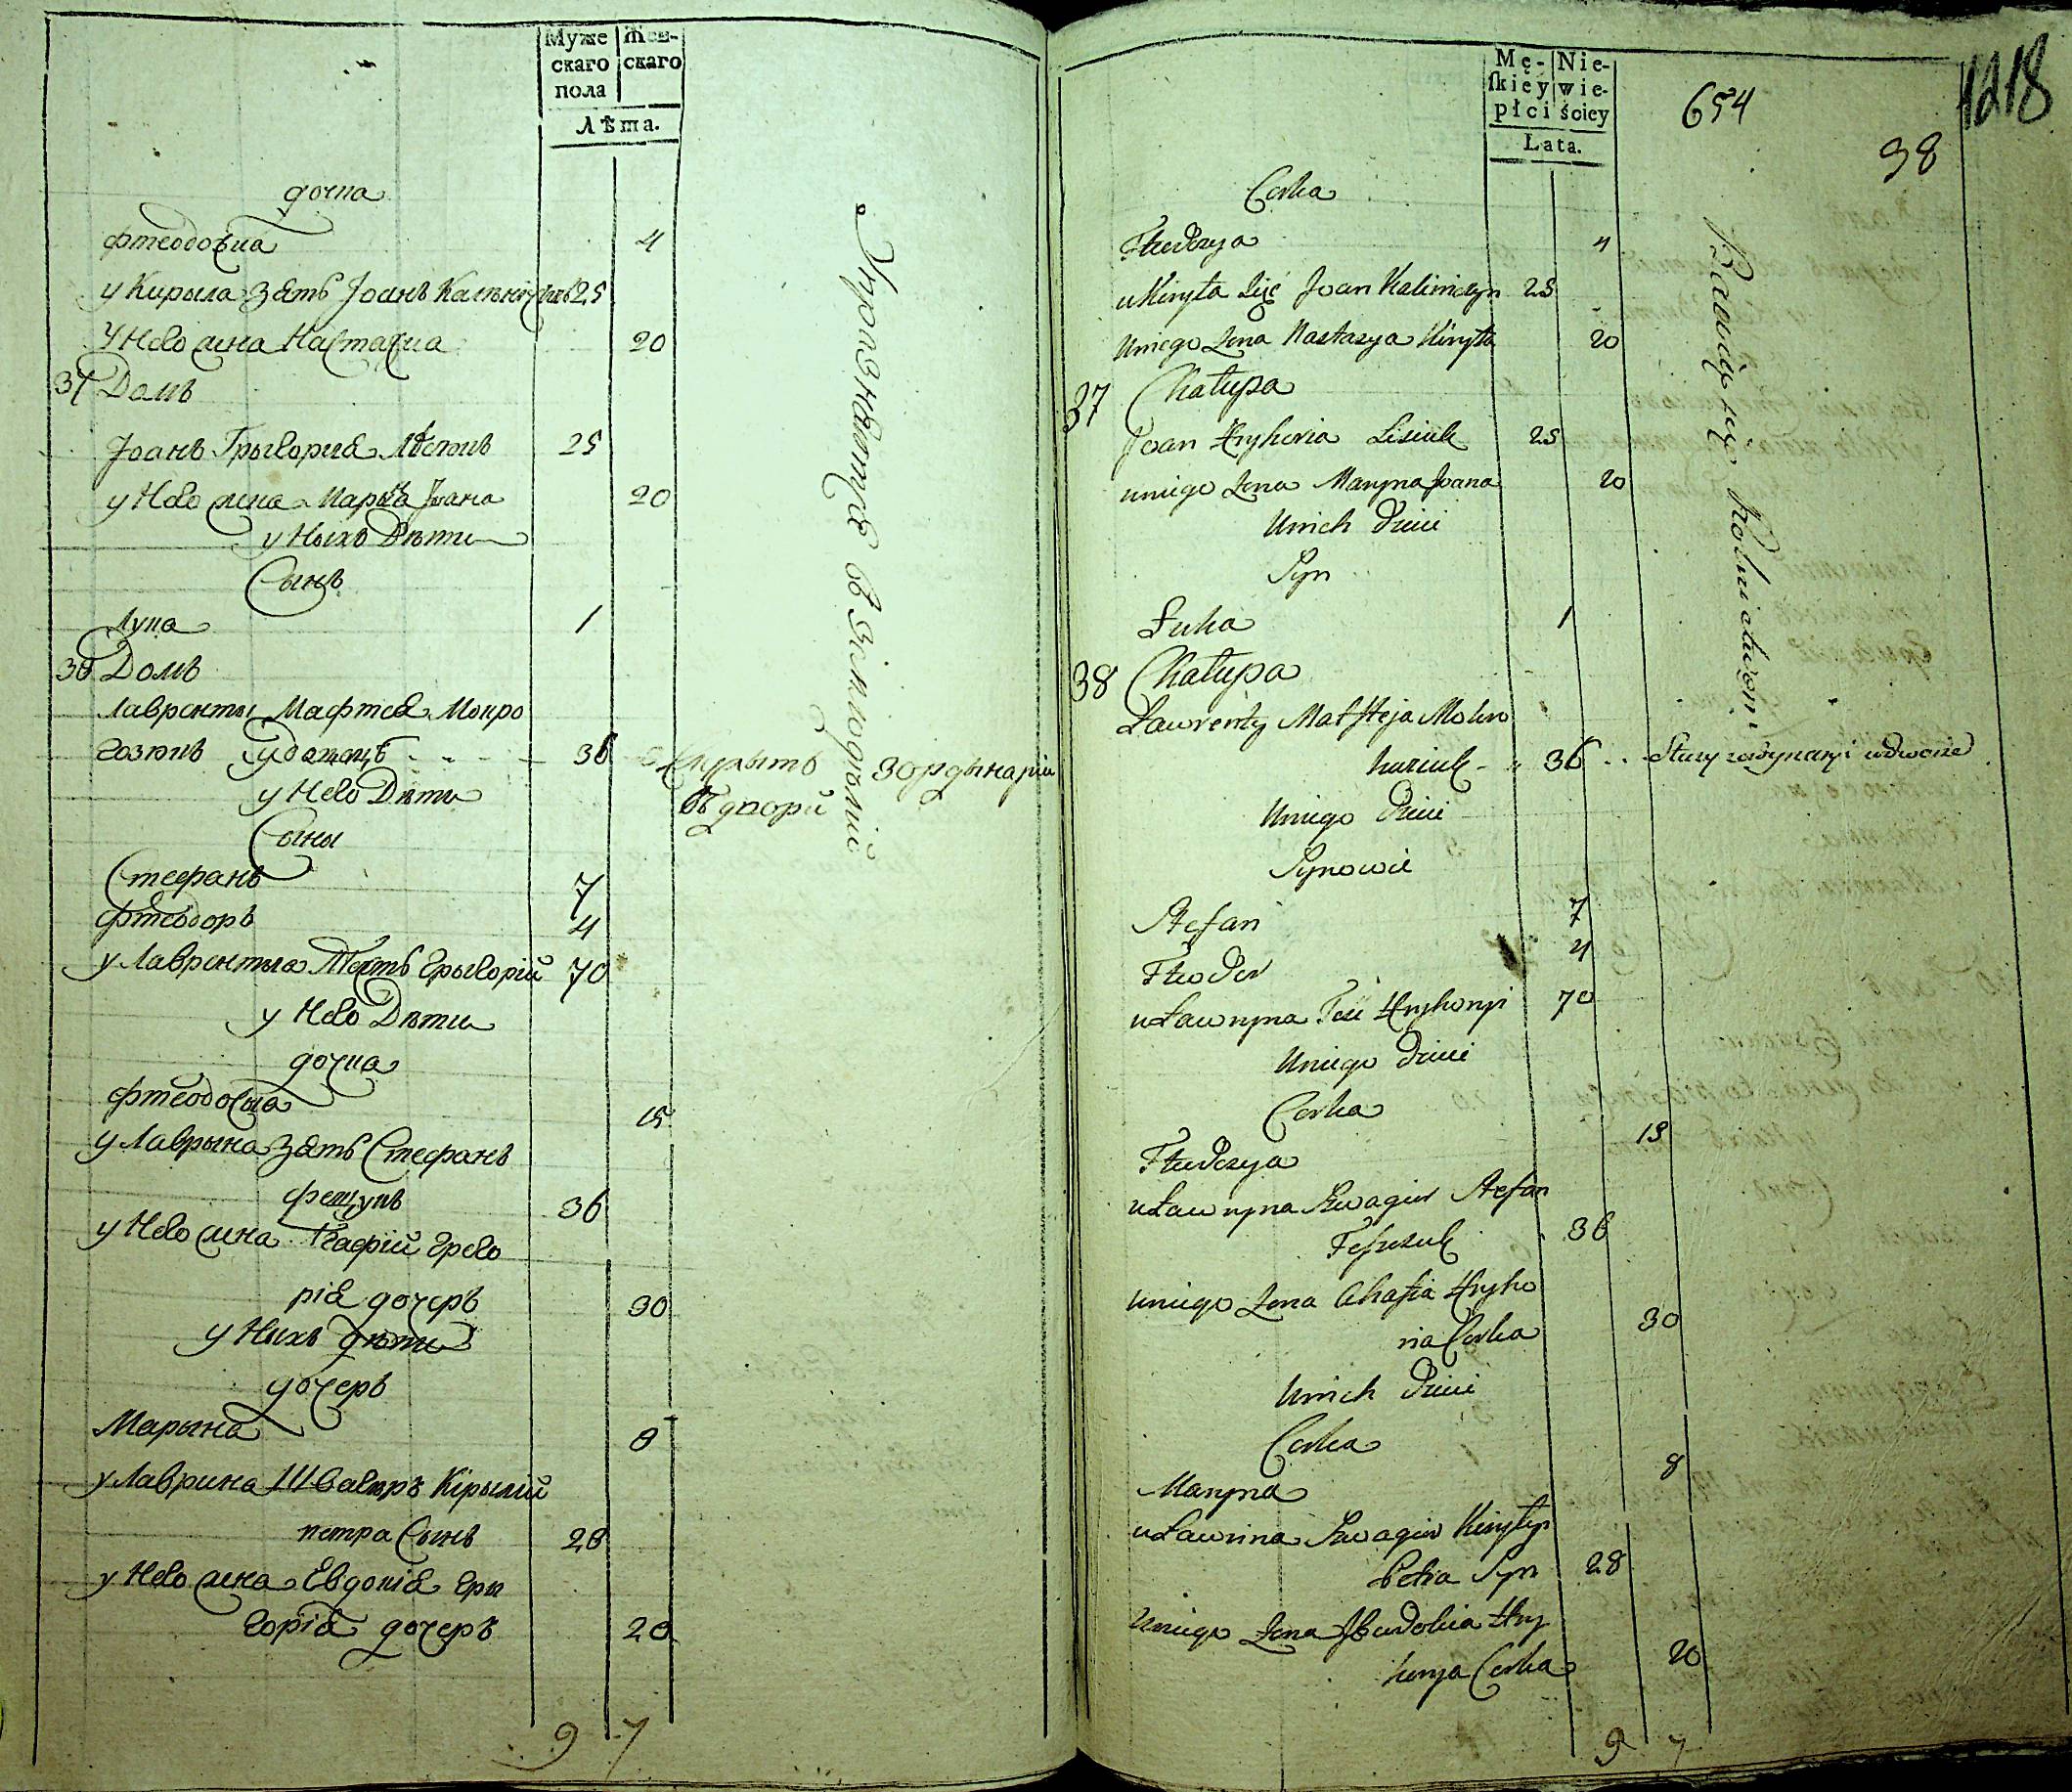 Муже
скаго
пола
Жен-
скаго
Лѣта.
дочка
Фтеодоѣиа 4
у Кирыла Зать Іоанъ 25
у Него жена Настасиа 20
37 Домъ
Іоанъ Грыгориа 25
у Него жена Марына Іоана 20
у Ныхъ Дѣти
Сынъ
Лука 1
38 Домъ
Лавренты Мафтеа Мокро
гозюкъ удовецъ 36
у Него Дѣти
Сыны
Стефанъ 7
Фтеодоръ 4
у Лаврентыа Тесть Грыгорій 70
у Него Дѣти
дочка
Фтеодосыа 15
у Лаврына Зать Стефанъ
Фещукъ 36
у Него жена Грего
ріа дочеръ 30
у Ныхъ дѣти
дочеръ
Марына 8
у Лаврина Швагеръ Кірылій
петра Сынъ 28
у Него жена Евдокіа Гры
горіа дочеръ 20
9 7
Упражняются в Земледеліи
Служытъ Зордынаріи
въ дворѣ
Mę-
skiéy
płci
Nie-
wie-
ściey
Lata.
654
98
1218
Corka
Fteodozya 4
u Kiryła Zięć Joan Kaliniczyn 25
Uniego Zona Nastazya Kiryła 20
37 Chałupa
Joan Hryhoria Lisiuk 25
uniego Zona Maryna Joana 20
Unich Dzieci
Syn
Łuka 1
38 Chałupa
Ławrenty Matfteja Mokro
huziuk 36 Służy zordynaryi wdworze
Uniego Dzieci
Synowie
Stefan 7
Fteodor 4
u Ławryna Teść Hryhoryi 70
Uniego Dzieci
Corka
Fteodozya 15
u Ławryna Szwagier Stefan
Feszczuk 36
Uniego Zona Ahafia Hryho
ria Corka 30
Unich Dzieci
Corka
Maryna 8
u Ławrina Szwagier Kiryłyi
Petra Syn 28
Uniego Zona Jewdokia Hry
horya Corka 20
9 7
Bawią się Rolnictwem